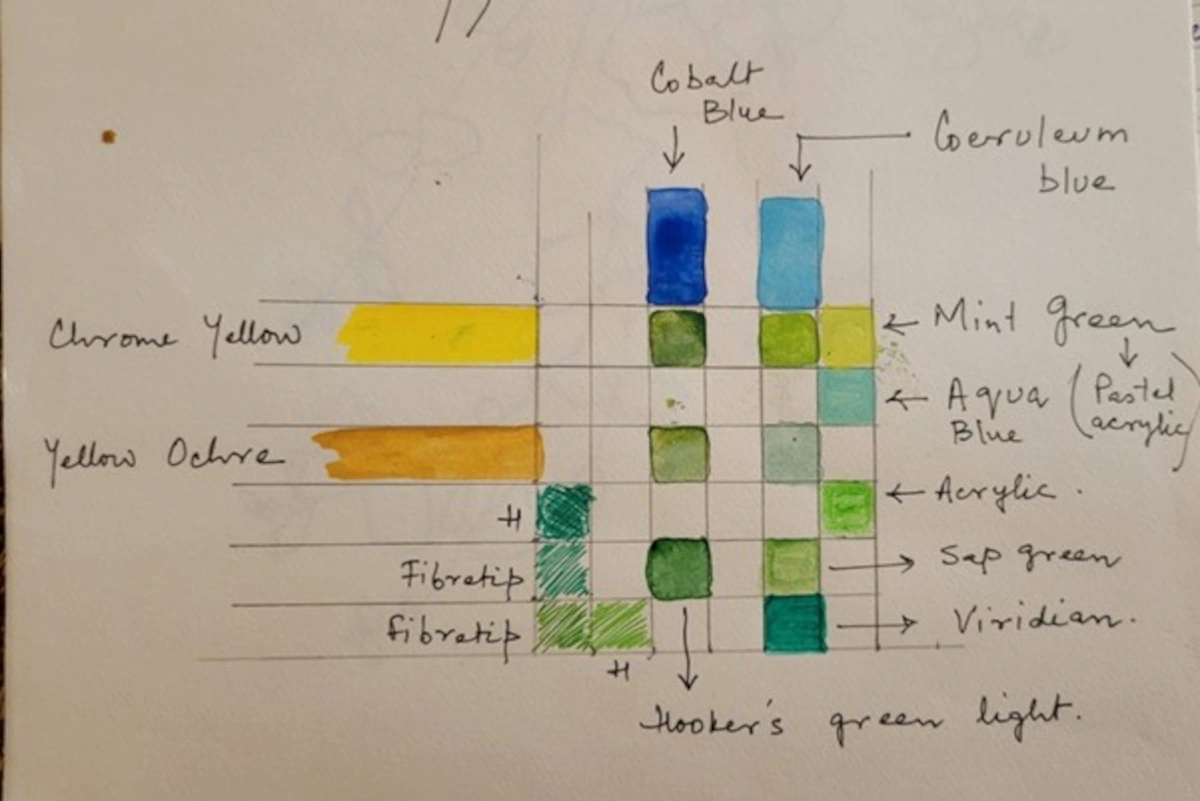 Cobalt
Blue
Coeruleum
blue
Chrome Yellow
Mint green
Aqua
Blue
(Pastel
acrylic)
Yellow Ochre
H
Acrylic.
Fibretip
Sap green
fibretip
Viridian.
H
Hooker's green light.